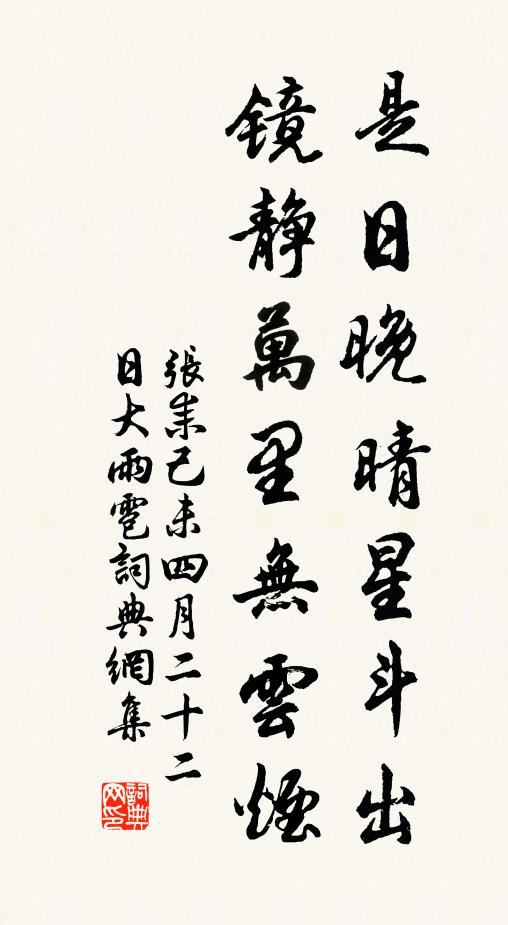 是日晚晴星斗出
鏡静萬里無雲煙
張耒己未四月二十二
日大雨雹詞典網集
詞典
网印